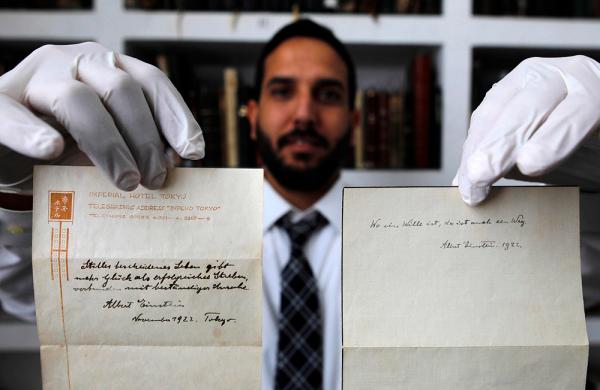 帝国ホテル
IMPERIAL HOTEL TOKYO
TELEGRAPHIC ADDRESS "IMPEHO TOKYO"
Stilles bescheidenes Leben gibt
mehr Glück als erfolgreiches Streben,
verbunden mit beständiger Unruhe.
Albert Einstein
November 1922. Tokyo.
Wo ein Wille ist, da ist auch ein Weg.
Albert Einstein. 1922.